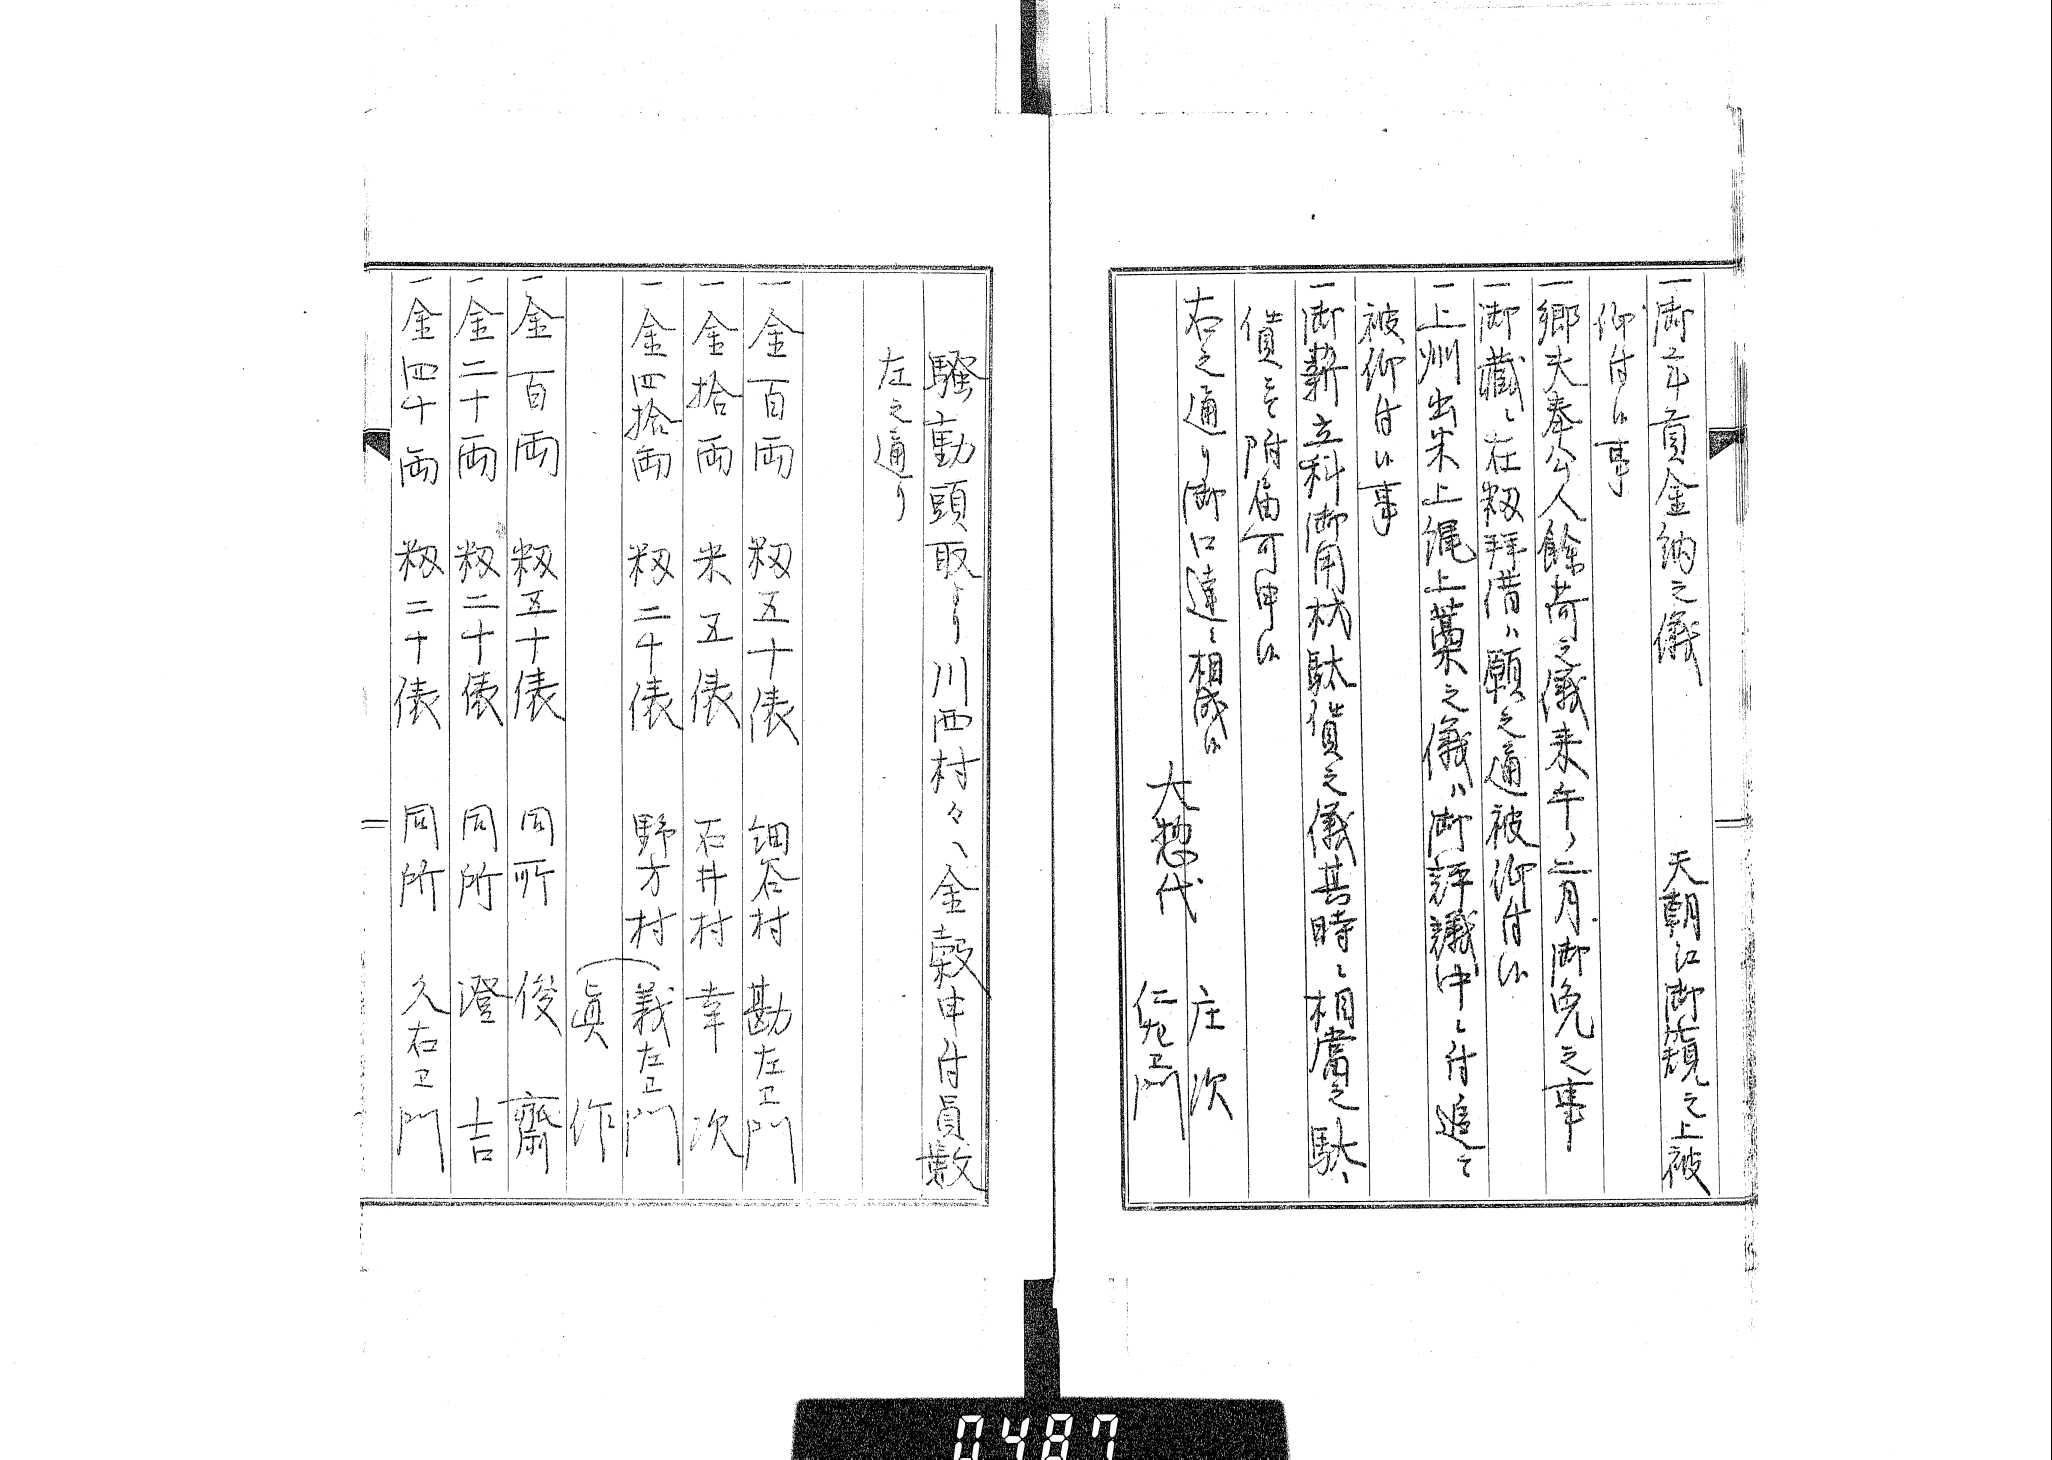 一御年貢金納之儀　天朝江御願之上被
仰付候事
一郷夫奉公人餘荷之儀来午ノ二月御免之事
一御藏ニ在籾拝借ハ願之通被仰付候
一上州出米上縄上藁之儀ハ御評議中ニ付追て
被仰付候事
一御薪立科御用材駄賃之儀其時ニ相當之駄
賃ニて附届可申候
右之通り御口達ニ相成候
大惣代　庄次
仁左衛門
騒動頭取より川西村々ヘ金穀申付員數
左之通り
一金百両　籾五十俵　細谷村　勘左卫門
一金拾両　米五俵　石井村　幸次
一金四拾両　籾二十俵　野方村　義左卫門
眞作
一金百両　籾五十俵　同所　俊齋
一金二十両　籾二十俵　同所　澄吉
一金四十両　籾二十俵　同所　久右卫門
0487